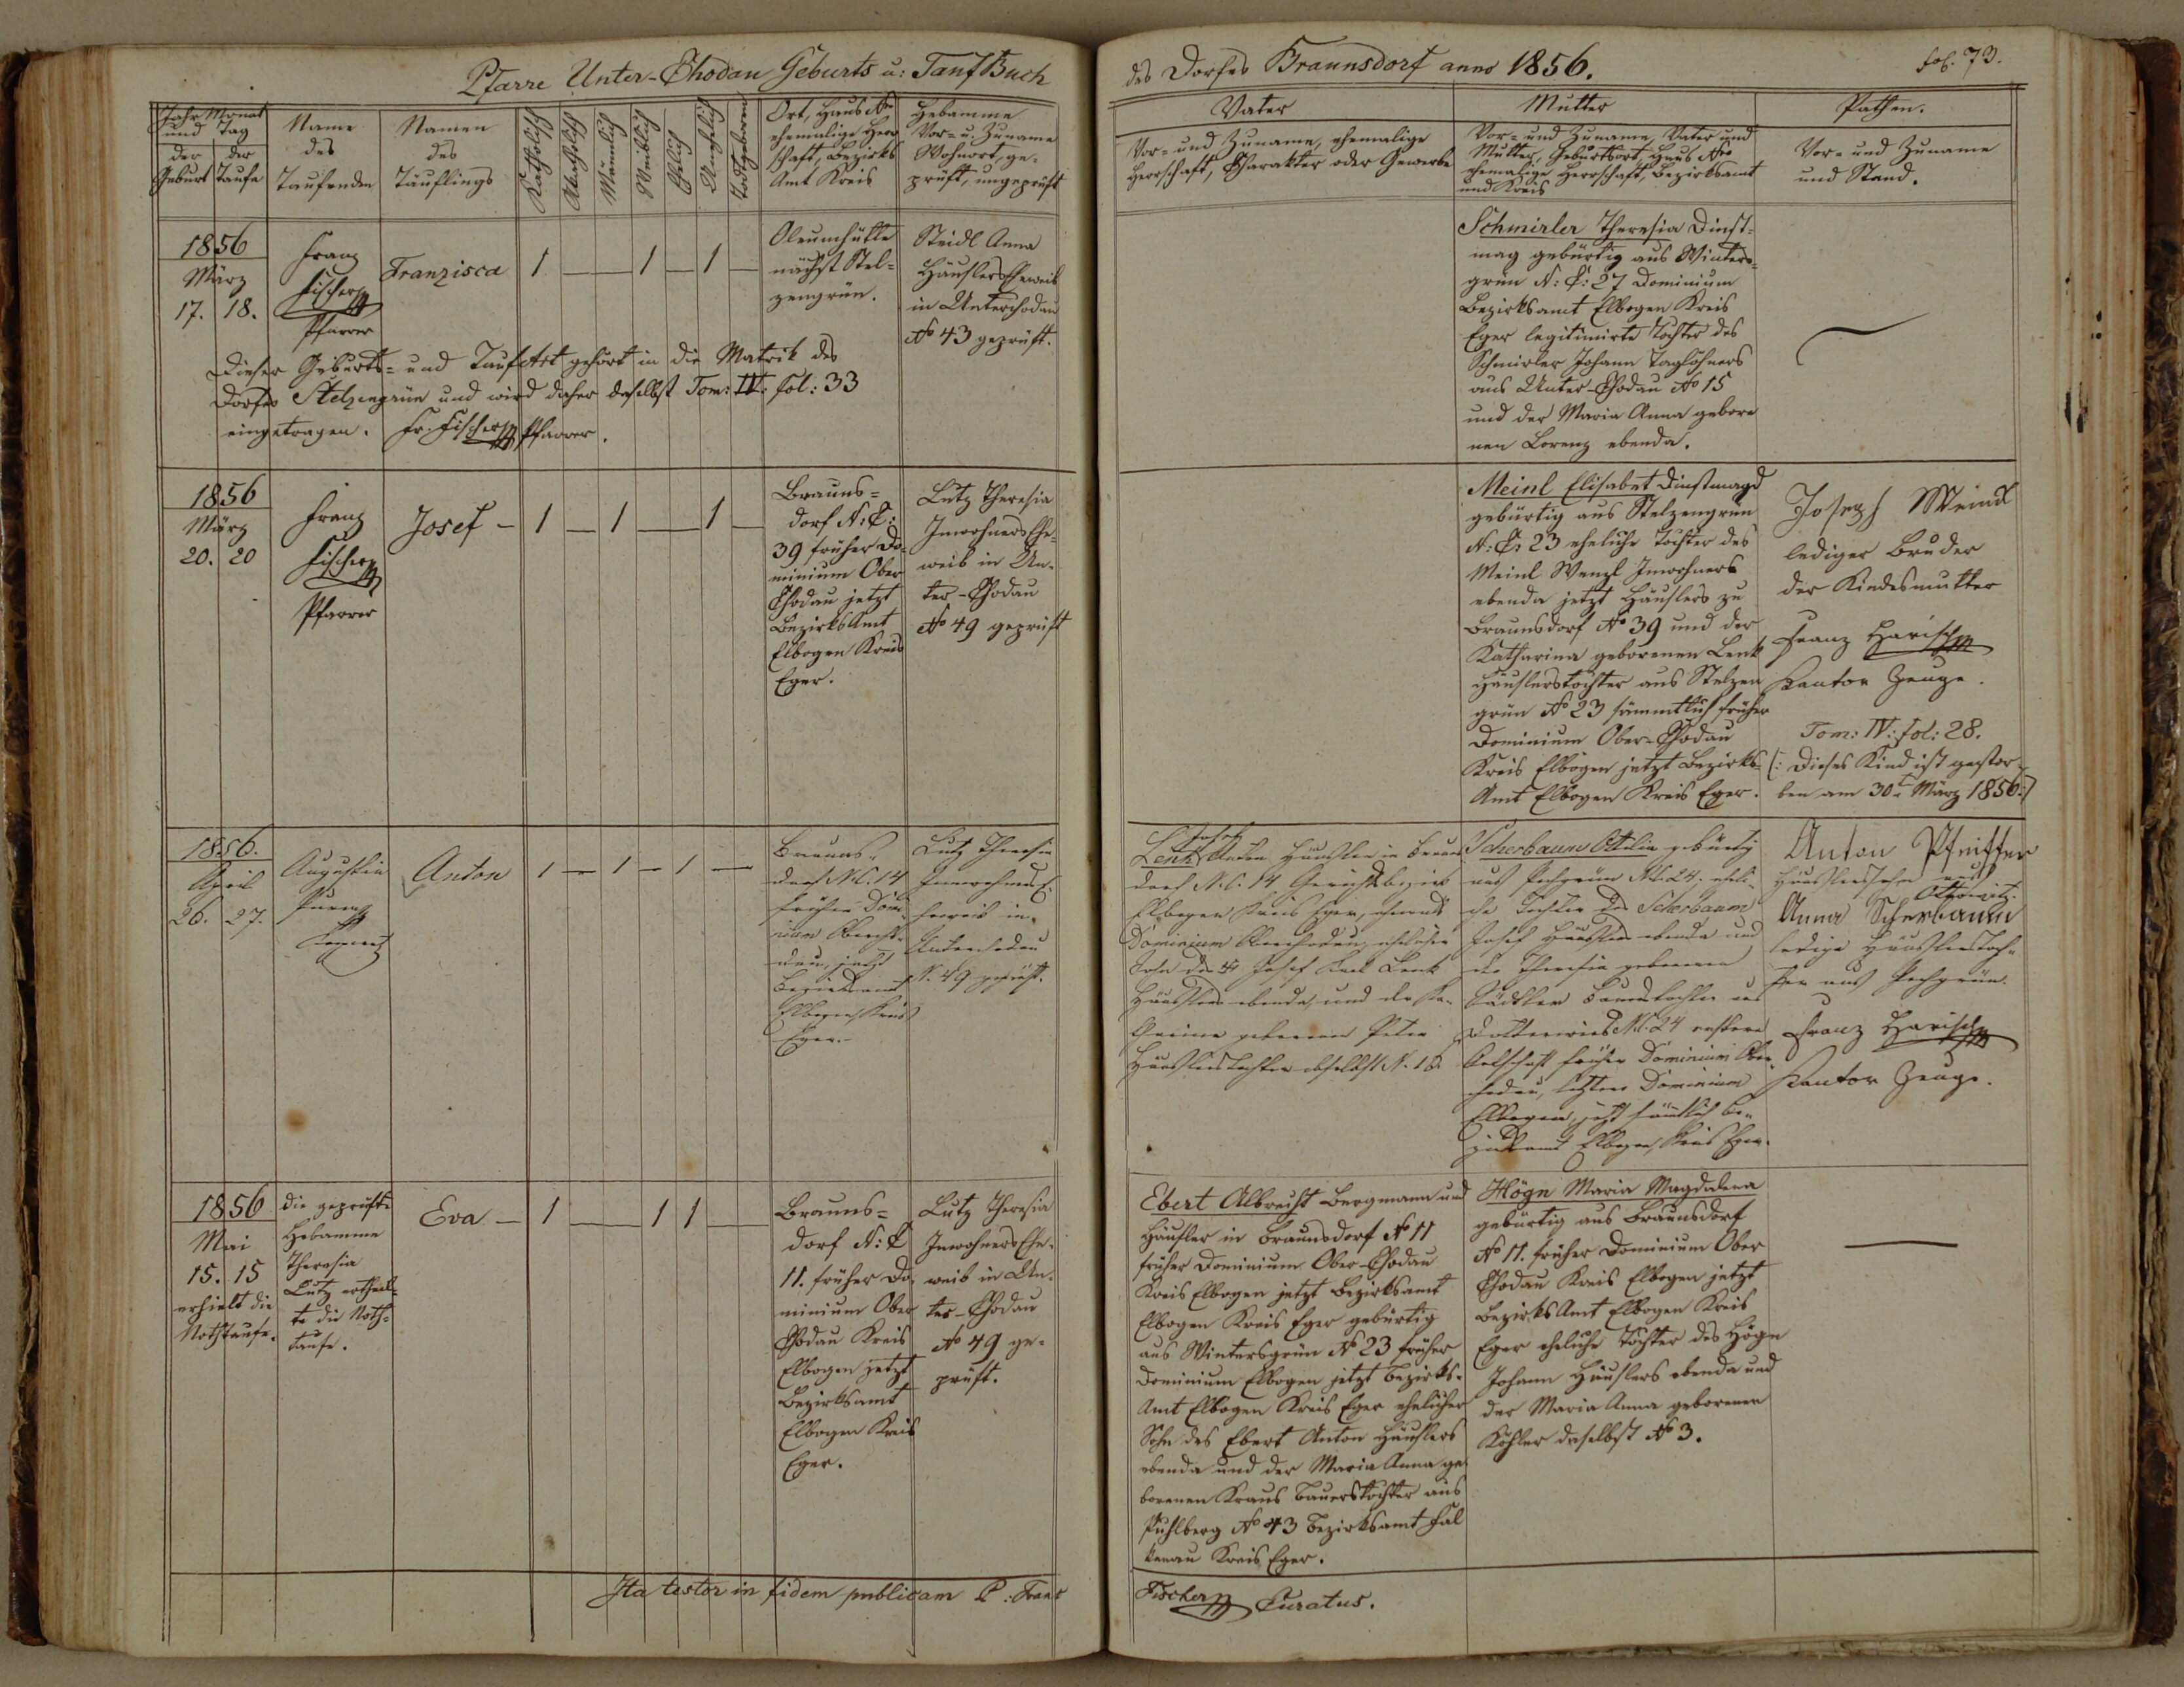 Pfarre Unter-Chodau Geburts u: Tauf Buch
des Dorfes Braunsdorf anno 1856.
fol. 73.
Jahr Monat
und Tag
der Geburt
der Taufe
Name
des
Taufenden
Namen
des
Täuflings
Katholisch
Akatholisch
Männlich
Weiblich
Ehelich
Unehelich
Todtgeboren
Ort, Haus Nro
ehemalige Herr
schaft, Bezirks
Amt Kreis
Hebamme
Vor- u. Zuname
Wohnort, ge-
prüft, ungeprüft
Vater
Vor- und Zuname, ehemalige
Herrschaft, Charakter oder Gewerbe
Mutter
Vor- und Zuname, Vater und
Mutter, Geburtsort, Haus Nro
ehemalige Herrschaft, Bezirksamt
und Kreis
Pathen.
Vor- und Zuname
und Stand.
1856
März
17. 18.
Franz
Fischer
Pfarrer
Franzisca
1 — — 1 — 1 —
Oleumhütte
nächst Stel-
zengrün.
Steidl Anna
Häuslers Eheweib
in Unterchodau
No 43 geprüft.
Dieser Geburts- und Tauf Akt gehört in die Matrik des
Dorfes Stelzengrün und wird daher daselbst Tom: IV: fol: 33
eingetragen. Fr. Fischer Pfarrer.
Schmirler Theresia Dinst-
mag gebürtig aus Winters-
grün N: C: 27 Dominium
Bezirksamt Elbogen Kreis
Eger legitimirte Tochter des
Schmirler Johann Taglöhners
aus Unter-Chodau No 15
und der Maria Anna gebore
nen Lorenz ebenda.
1856
März
20. 20
Franz
Fischer
Pfarrer
Josef — 1 — 1 — 1 —
Brauns-
dorf N: C:
39 früher Do-
minium Ober
Chodau jetzt
Bezirks Amt
Elbogen Kreis
Eger.
Lutz Theresia
Inwohners Ehe-
weib in Un-
ter-Chodau
No 49 geprüft
Meinl Elisabet Dinstmagd
gebürtig aus Stelzengrün
N: C: 23 eheliche Tochter des
Meinl Wenzl Inwohners
ebenda jetzt Häuslers zu
Braunsdorf No 39 und der
Katharina geborenen Lenk
Häuslerstochter aus Stelzen
grün No 23 sämmtlich früher
Dominium Ober-Chodau
Kreis Elbogen jetzt Bezirks-
Amt Elbogen Kreis Eger.
Joseph Meinl
lediger Bruder
der Kindesmutter
Franz Harisch
Kantor Zeuge.
Tom: IV: fol: 28.
(: Dieses Kind ist gestor-
ben am 30t März 1856:)
1856.
April
26. 27.
Augustin
Anton
1 — 1 — 1 —
Brauns-
dorf N.C. 14
früher Domi-
nium Obercho-
dau, jetzt
Bezirksamt
Elbogen, Kreis
Eger.
Lutz Theresia
Inwohners E-
heweib in
Unterchodau
N. 49 geprüft.
Josef
Lenk Anton Häusler in Brauns
dorf N.C. 14 Gerichtsbezirk
Elbogen Kreis Eger, ehemals
Dominium Oberchodau, ehelicher
Sohn des Josef Karl Lenk
Häuslers ebenda, und der Ka-
tharina geborenen Peter
Häuslerstochter daselbst N. 18
Scherbaum Ottilia gebürtig
aus Pechgrün N.C. 24. eheli-
che Tochter des Scherbaum
Josef Häuslers ebenda und
der Theresia geborenen
Bauerstochter aus
N.C. 24 erstere
Ortschaft früher Dominium Ober-
chodau, letztere Dominium
Elbogen, jetzt sämtlich Be-
zirksamt Elbogen, Kreis Eger.
Anton Pfeiffer
Häuslerssohn aus
Anna Scherbaum
ledige Häuslerstoch-
ter aus Pechgrün.
Franz Harisch
Kantor Zeuge.
1856
Mai
15. 15
erhielt die
Nothtaufe.
die geprüfte
Hebamme
Theresia
Lutz ertheil-
te die Noth-
taufe.
Eva — 1 — 1 1 —
Brauns-
dorf N: C
11. früher Do-
minium Ober
Chodau Kreis
Elbogen jetzt
Bezirksamt
Elbogen Kreis
Eger.
Lutz Theresia
Inwohners Ehe-
weib in Un-
ter-Chodau
No 49 ge-
prüft.
Ebert Albrecht Bergmann und
Häusler in Braunsdorf No 11
früher Dominium Ober-Chodau
Kreis Elbogen jetzt Bezirksamt
Elbogen Kreis Eger gebürtig
aus Wintersgrün No 23 früher
Dominium Elbogen jetzt Bezirks-
Amt Elbogen Kreis Eger ehelicher
Sohn des Ebert Anton Häuslers
ebenda und der Maria Anna ge-
borenen Kraus Bauerstochter aus
Puhlberg No 43 Bezirksamt Fal
kenau Kreis Eger.
Högn Maria Magdalena
gebürtig aus Braunsdorf
No 11. früher Dominium Ober
Chodau Kreis Elbogen jetzt
Bezirks Amt Elbogen Kreis
Eger eheliche Tochter des Högn
Johann Häuslers ebenda und
der Maria Anna geborenen
Köhler daselbst No 3.
Ita testor in fidem publicam P. Franz
Fischer Curatus.